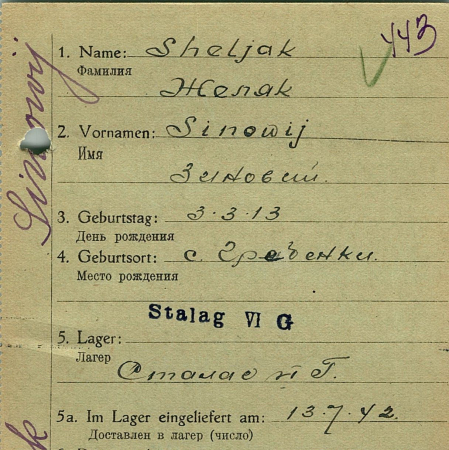 443
1. Name: Sheljak
Фамилия
Желяк
2. Vornamen: Sinowij
Имя
Зиновий.
3. Geburtstag: 3.3.13
День рождения
4. Geburtsort: с. Гребенки.
Место рождения
Stalag VI G
5. Lager:
Лагер
Сталаг VI Г.
5a. Im Lager eingeliefert am: 13.7.42.
Доставлен в лагер (число)
Sinowij